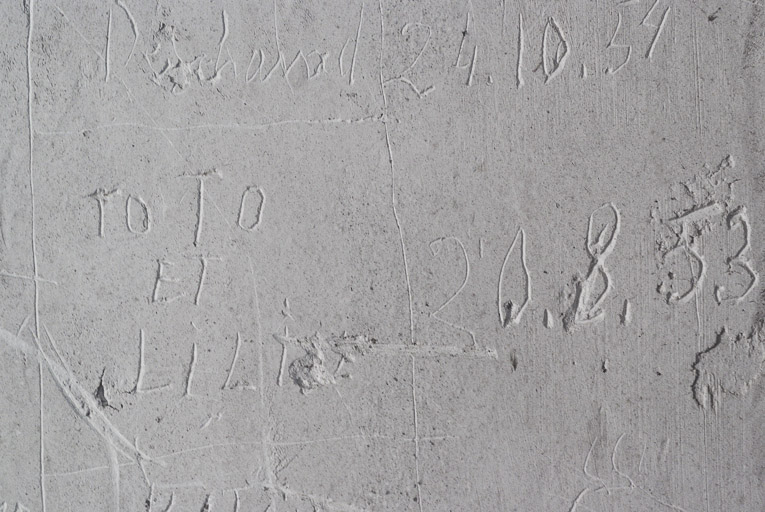 24.10.54
TOTO
20.8.53
ET
LiLi